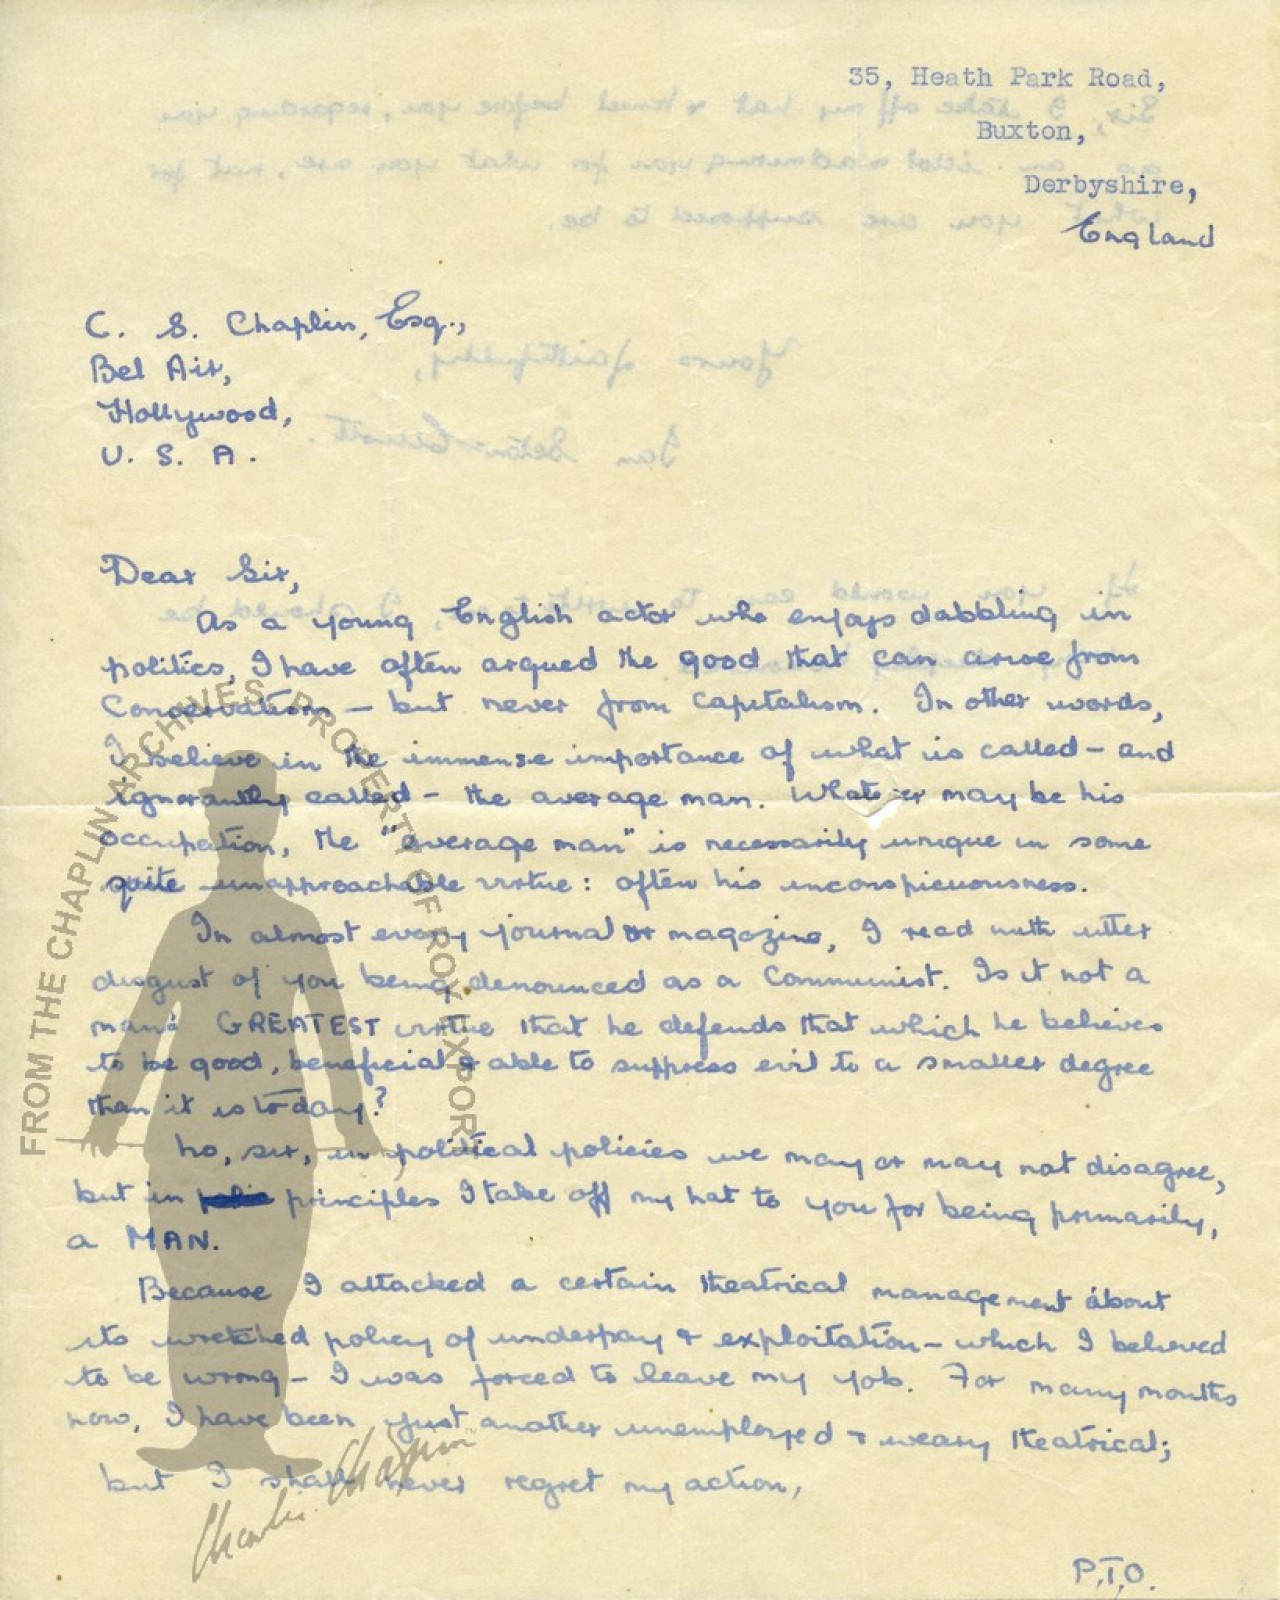 35, Heath Park Road,
Buxton,
Derbyshire,
England
C. S. Chaplin, Esq.,
Bel Air,
Hollywood,
U. S. A.
Dear Sir,
As a young English actor who enjoys dabbling in
politics, I have often argued the good that can arise from
Conservatism – but never from Capitalism. In other words,
I believe in the immense importance of what is called – and
ignorantly called – the average man. Whatever may be his
occupation, the "average man" is necessarily unique in some
quite unapproachable virtue: often his inconspicuousness.
In almost every journal or magazine, I read with utter
disgust of you being denounced as a Communist. Is it not a
man's GREATEST virtue that he defends that which he believes
to be good, beneficial & able to suppress evil to a smaller degree
than it is to-day?
No, sir, in political policies we may or may not disagree,
but in principles I take off my hat to you for being primarily,
a MAN.
Because I attacked a certain theatrical management about
its wretched policy of underpay & exploitation – which I believed
to be wrong – I was forced to leave my job. For many months
now, I have been just another unemployed & weary theatrical;
but I shall never regret my action,
P.T.O.
FROM THE CHAPLIN ARCHIVES PROPERTY OF ROY EXPORT
Charlie Chaplin